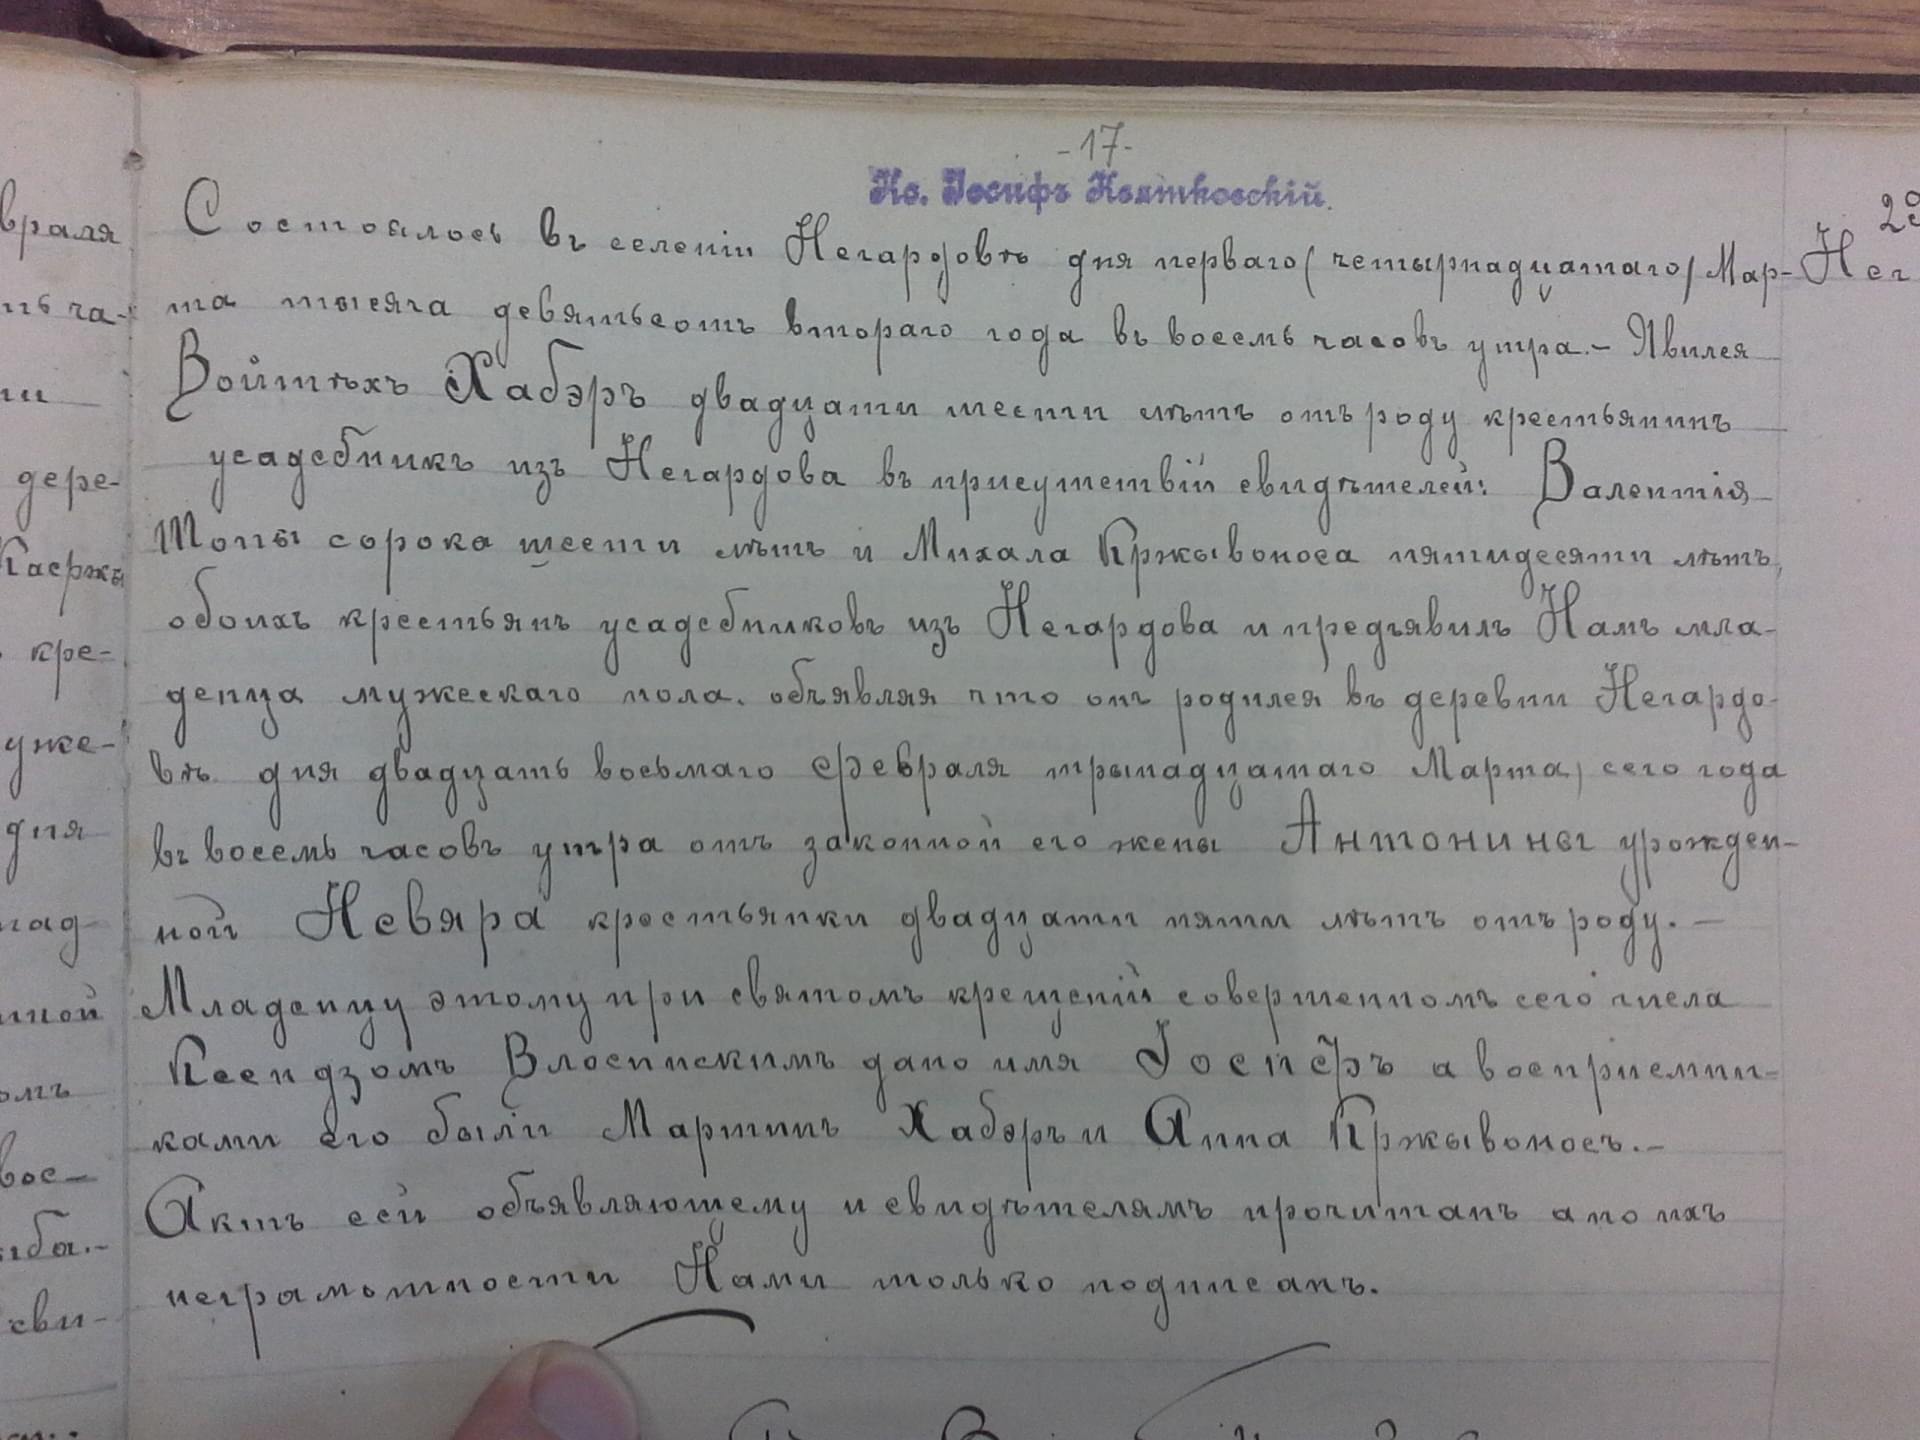 -17-
Кс. Іосифъ Квятковскій.
Состоялось въ селеніи Негардовѣ дня перваго (четырнадцатаго) Мар-
та тысяча девятьсотъ втораго года въ восемь часовъ утра.- Явился
Войтѣхъ Хабэръ двадцати шести лѣтъ отъ роду крестьянинъ
усадебникъ изъ Негардова въ присутствіи свидѣтелей: Валентія
Шопы сорока шести лѣтъ и Михала Кржывоноса пятидесяти лѣтъ,
обоихъ крестьянъ усадебниковъ изъ Негардова и предъявилъ Намъ мла-
денца мужескаго пола. объявляя что онъ родился въ деревни Негардо-
вѣ дня двадцать восьмаго февраля трынадцатаго Марта) сего года
въ восемь часовъ утра отъ законной его жены Антонины урожден-
ной Невяра крестьянки двадцати пяти лѣтъ отъ роду. -
Младенцу этому при святомъ крещеніи совершенномъ сего числа
Ксендзомъ дано имя Іосифъ а воспріемни-
ками его были Мартинъ Хабэръ и Анна Кржывоносъ.-
Актъ сей объявляющему и свидѣтелямъ прочитанъ а по ихъ
неграмотности Нами только подписанъ.
враля
ча-
дере-
Касржы
кре-
уже-
дня
над
нной
омъ
вос-
ыба.-
сви-
29
Нег